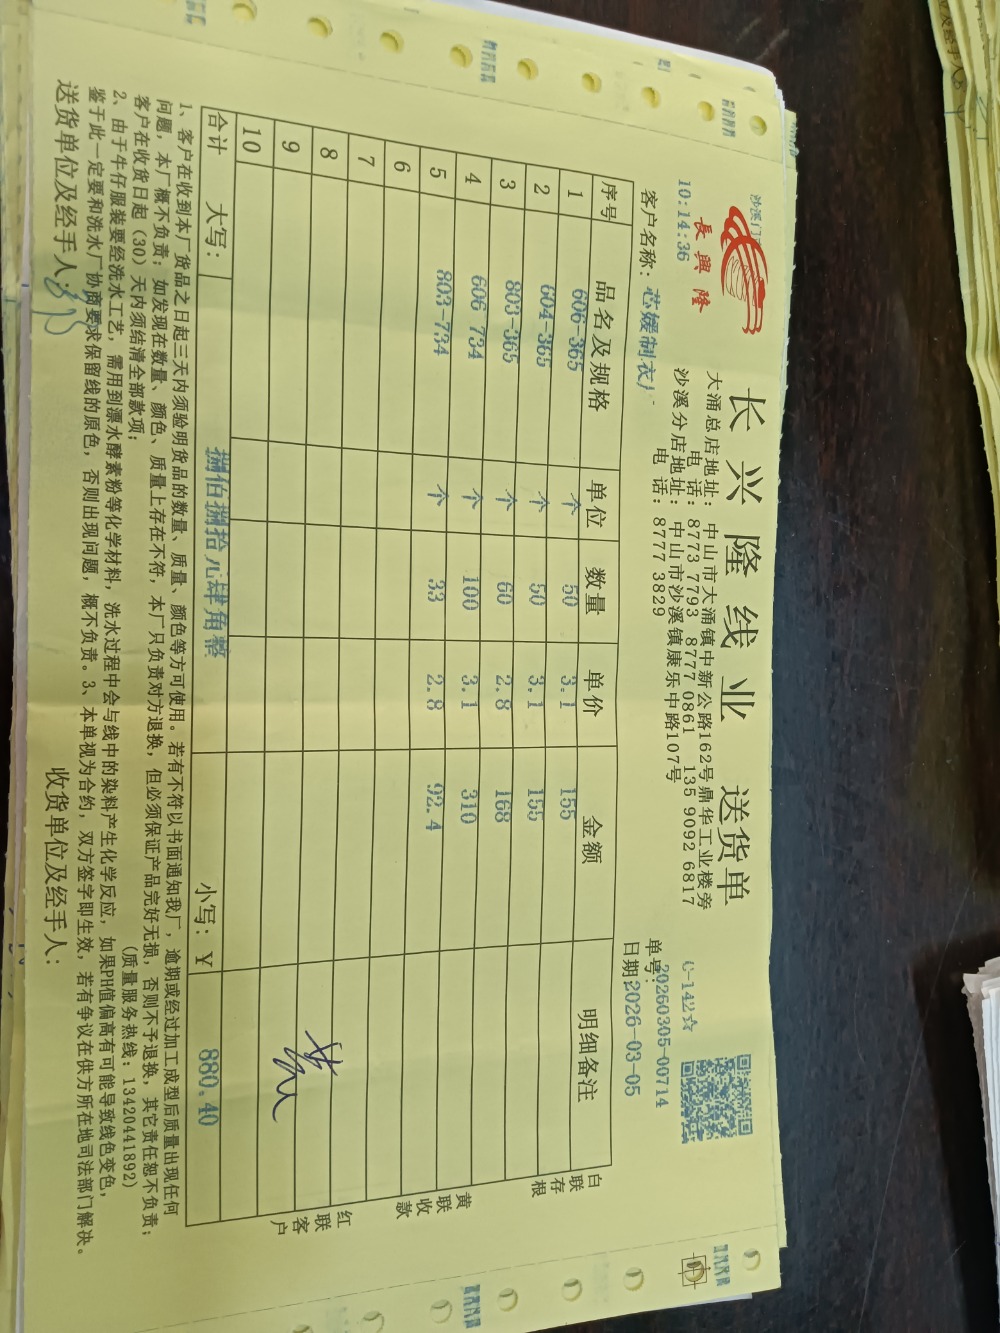 沙溪门
長興隆
长兴隆线业 送货单
10:14:36
大涌总店地址：中山市大涌镇中新公路162号鼎华工业楼旁
电 话：8773 7793 8777 0861 135 9092 6817
沙溪分店地址：中山市沙溪镇康乐中路107号
电 话：8777 3829
C-142☆
单号：20260305-00714
客户名称：芯媛制衣厂
日期：2026-03-05
序号 品名及规格 单位 数量 单价 金额 明细备注
1 606-365 个 50 3.1 155
2 604-365 个 50 3.1 155
3 803-365 个 60 2.8 168
4 606 734 个 100 3.1 310
5 803-734 个 33 2.8 92.4
6
7
8
9
10
合计 大写： 捌佰捌拾元肆角整 小写：￥ 880.40
白联存根
黄联收款
红联客户
1、客户在收到本厂货品之日起三天内须验明货品的数量、质量、颜色等方可使用。若有不符以书面通知我厂，逾期或经过加工成型后质量出现任何
问题，本厂概不负责；如发现在数量、颜色、质量上存在不符，本厂只负责对方退换，但必须保证产品完好无损，否则不予退换，其它责任恕不负责；
客户在收货日起（30）天内须结清全部款项；
(质量服务热线：13420441892)
2、由于牛仔服装要经洗水工艺，需用到漂水酵素粉等化学材料，洗水过程中会与线中的染料产生化学反应，如果PH值偏高有可能导致线色变色，
鉴于此一定要和洗水厂协商要求保留线的原色，否则出现问题，概不负责。3、本单视为合约，双方签字即生效，若有争议在供方所在地司法部门解决。
送货单位及经手人： 收货单位及经手人：